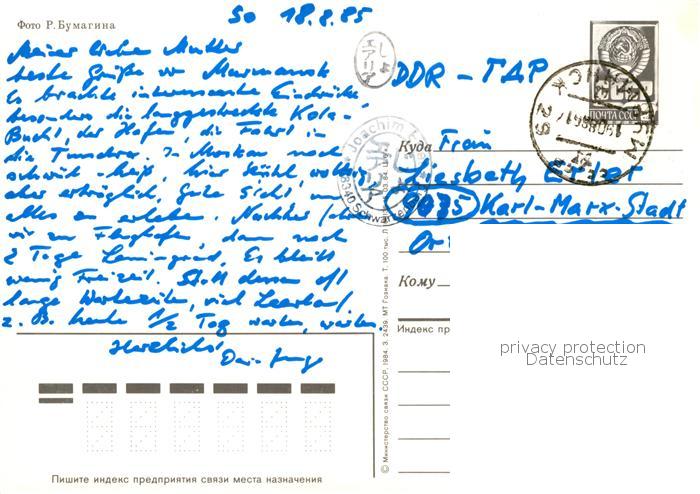 Фото Р.Бумагина
So 18.8.85
Meine liebe Mutter
beste Grüße v. Murmansk
Es brachte interessante Eindrücke
besonders die langgestreckte Kola-
Bucht, der Hafen die Fahrt in
die Tundra. In Moskau noch
heiß, hier kühl, wolkig
aber erträglich, gute Sicht, um
alles zu erleben. Nachher
wir zu Flughafen, dann noch
2 Tage Leningrad. Es bleibt
wenig Freizeit. Statt dessen oft
lange Wartezeiten, viel Leerlauf
z.B. heute 1/2 Tag warten, warten.
Herzlichst
Dein Junge
DDR - ГДР
ПОЧТА СССР
Joachim
8340 Schwar
Куда Frau
Liesbeth
9075 Karl-Marx-Stadt
Or
Кому
Индекс пр
privacy protection
Datenschutz
© Министерство связи СССР, 1984. З. 2439. МТ Гознака. Т. 100 тыс.
Пишите индекс предприятия связи места назначения